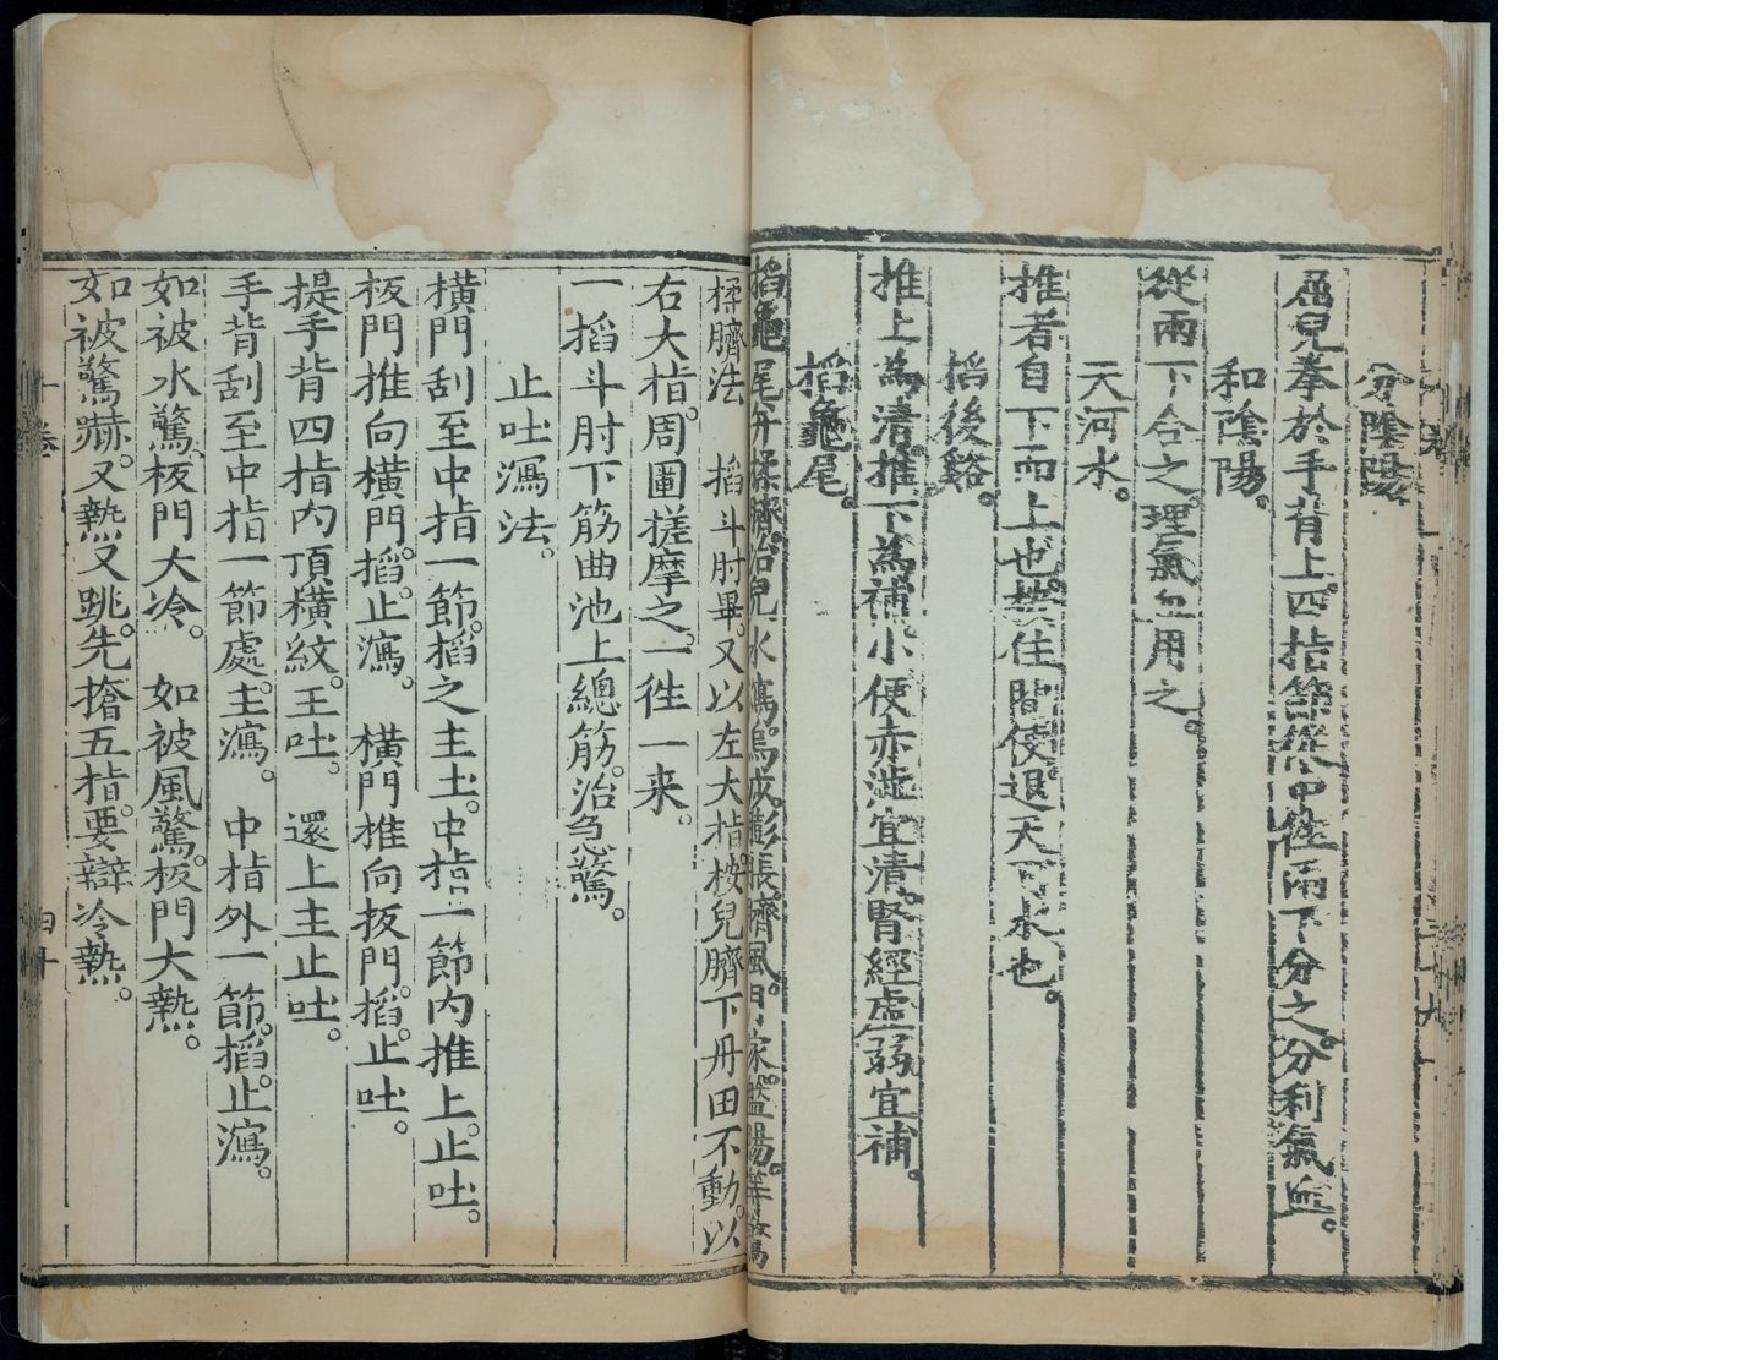 分陰陽
屈兒拳於手背上。四指節從中徃兩下分之。分利氣血。
和陰陽。
從兩下合之。理氣血用之。
天河水。
推者自下而上也。按住間使。退天河水也。
掐後谿。
推上為清。推下為補。小便赤澁宜清。腎經虛弱宜補。
掐龜尾。
掐龜尾并揉臍。治兒水瀉。烏成。膨脹。臍風。月家。盤腸。等驚
揉臍法 掐斗肘畢。又以左大指按兒臍下丹田不動。以
右大指。周圍搓摩之。一徃一来。
一掐斗肘下筋曲池上總筋。治急驚。
止吐瀉法。
橫門刮至中指一節。掐之主吐。中指一節內推上。止吐。
板門推向橫門。掐。止瀉。 橫門推向板門。掐。止吐。
提手背四指內頂橫紋。主吐。 還上主止吐。
手背刮至中指一節處。主瀉。 中指外一節。掐。止瀉。
如被水驚。板門大冷。 如被風驚。板門大熱。
如被驚嚇。又熱又跳。先揝五指。要辯冷熱。
十卷 四十